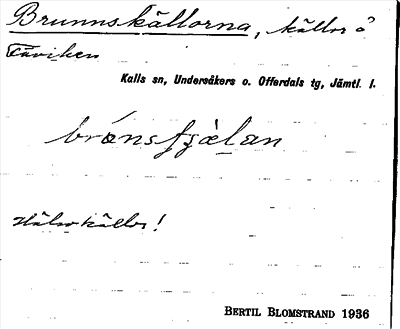 Brunnskällorna, källor å
Fäviken
Kalls sn, Undersåkers o. Offerdals tg, Jämtl. l.
brónsfjälan
Hälsokällor!
BERTIL BLOMSTRAND 1936